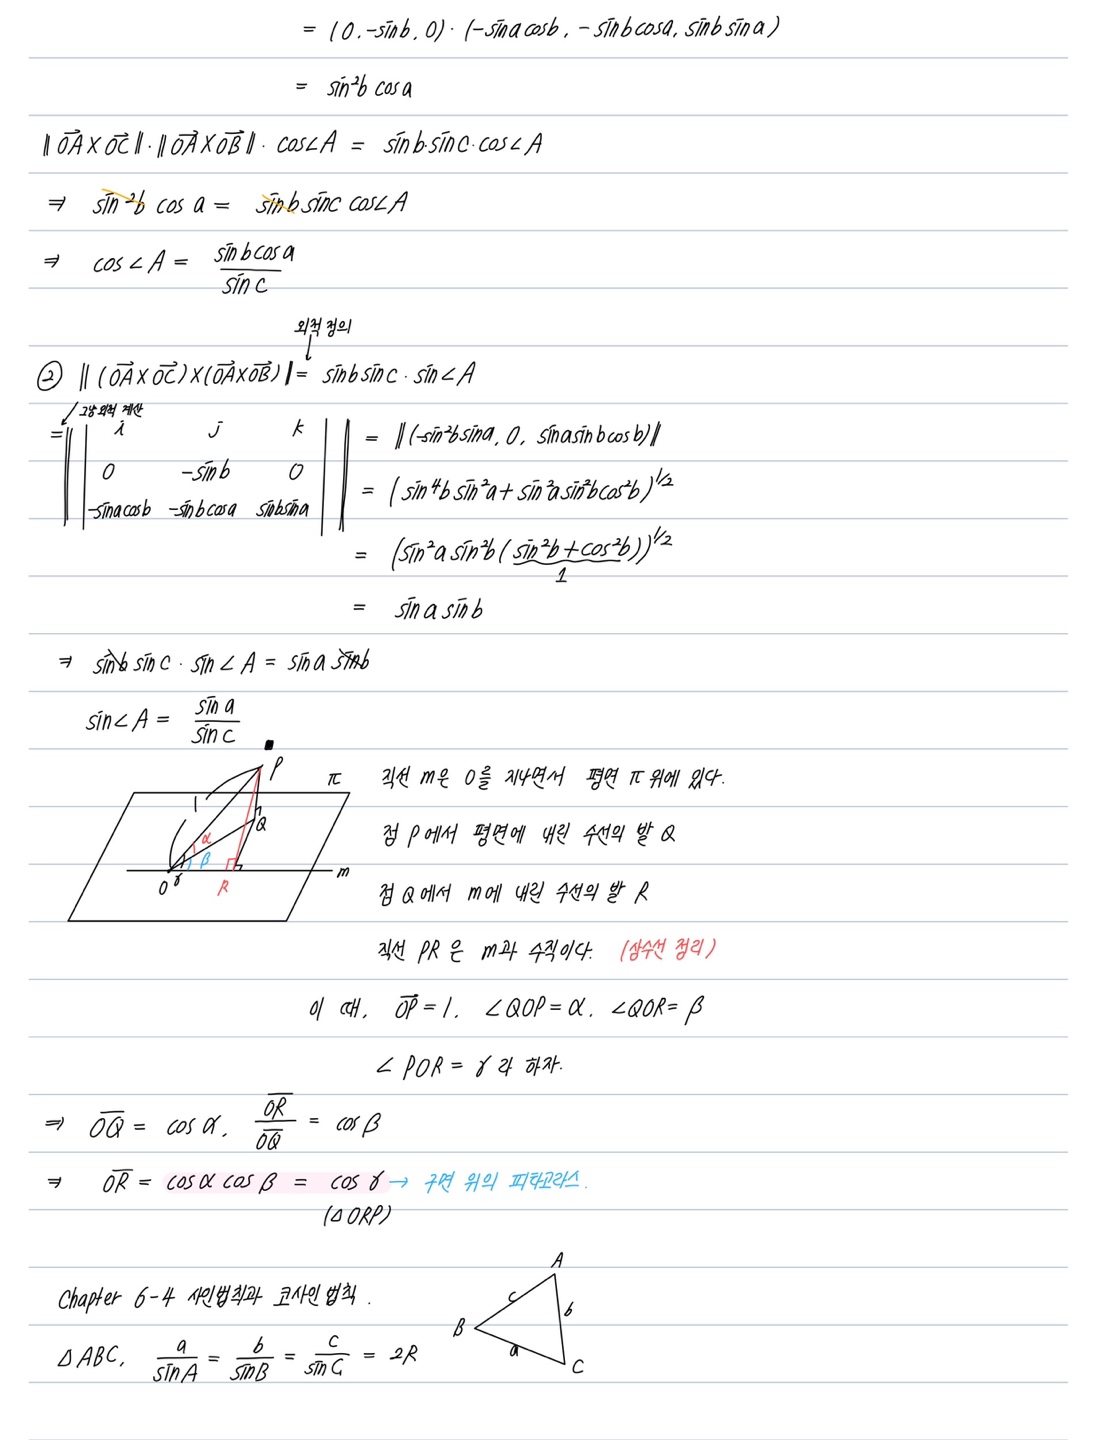 = (0, -sinb, 0) · (-sinacosb, -sinbcosa, sinbsina)
= sin²b cosa
‖OA⃗ × OC⃗‖ · ‖OA⃗ × OB⃗‖ · cos∠A = sinb·sinc·cos∠A
⇒ sin²b cos a = sinb sinc cos∠A
⇒ cos∠A = sinbcosa / sinc
외적 정의
② ‖(OA⃗ × OC⃗) × (OA⃗ × OB⃗)‖ = sinbsinc · sin∠A
그냥 외적 계산
= ‖ | i j k | ‖ = ‖(-sin²bsina, 0, sinasinbcosb)‖
0 -sinb 0
= (sin⁴bsin²a + sin²asin²bcos²b)^1/2
-sinacosb -sinbcosa sinbsina
= (sin²a sin²b (sin²b + cos²b))^1/2
1
= sin a sin b
⇒ sinb sinc · sin∠A = sina sinb
sin∠A = sin a / sin c
P π 직선 m은 O를 지나면서 평면 π 위에 있다.
1
Q 점 P에서 평면에 내린 수선의 발 Q
α
β
O γ R m
점 Q에서 m에 내린 수선의 발 R
직선 PR은 m과 수직이다. (삼수선 정리)
이 때, OP̅ = 1, ∠QOP = α, ∠QOR = β
∠POR = γ라 하자.
⇒ OQ̅ = cos α, OR̅ / OQ̅ = cos β
⇒ OR̅ = cosα cos β = cos γ → 구면 위의 피타고라스.
(△ORP)
Chapter 6-4 사인법칙과 코사인 법칙.
A
c b
B
a
C
△ABC, a / sinA = b / sinB = c / sinC = 2R